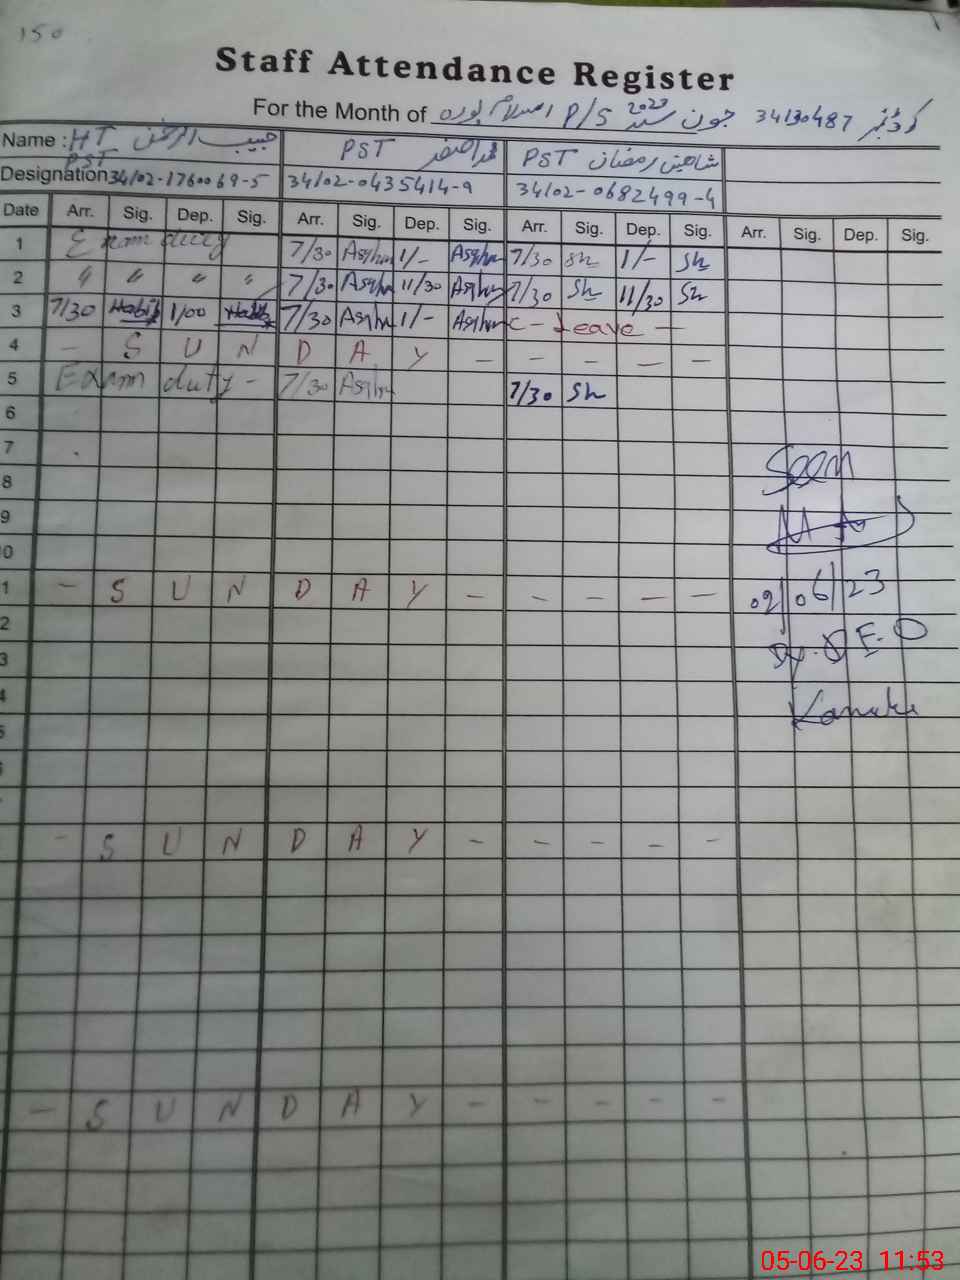 150
Staff Attendance Register
For the Month of جون سنہ 2023 P/S اسلام پورہ کوڈ نمبر 34130487
Name : HT حبیب الرحمٰن PST محمد اصغر PST شاھین رمضان
PST
Designation 34102-1760069-5 34102-0435414-9 34102-0682499-4
Date Arr. Sig. Dep. Sig. Arr. Sig. Dep. Sig. Arr. Sig. Dep. Sig. Arr. Sig. Dep. Sig.
1 Exam duty 7/30 Asghar 1/- Asghar 7/30 Sh 1/- Sh
2 " " " " 7/30 Asghar 11/30 Asghar 7/30 Sh 11/30 Sh
3 7/30 Habib 1/00 Habib 7/30 Asghar 1/- Asghar C - Leave -
4 - S U N D A Y - - - - -
5 Exam duty - 7/30 Asghar 7/30 Sh
6
7
8 Seen
9
0
1 - S U N D A Y - - - - - 02/06/23
2
3 Dy. D E.O
4
5
- S U N D A Y - - - - -
- S U N D A Y - - - - -
05-06-23 11:53